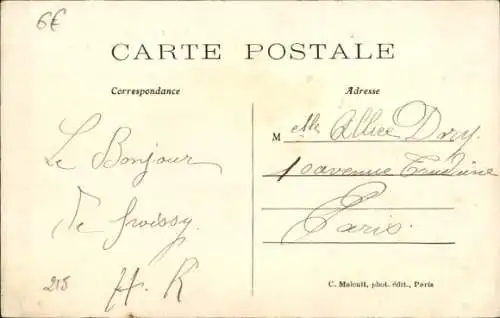 6€
CARTE POSTALE
Correspondance
Adresse
Le Bonjour
De Groissy.
H. R
215
M elle Allice Dory
10 avenue Trudaine
Paris.
C. Malcuit, phot. édit., Paris